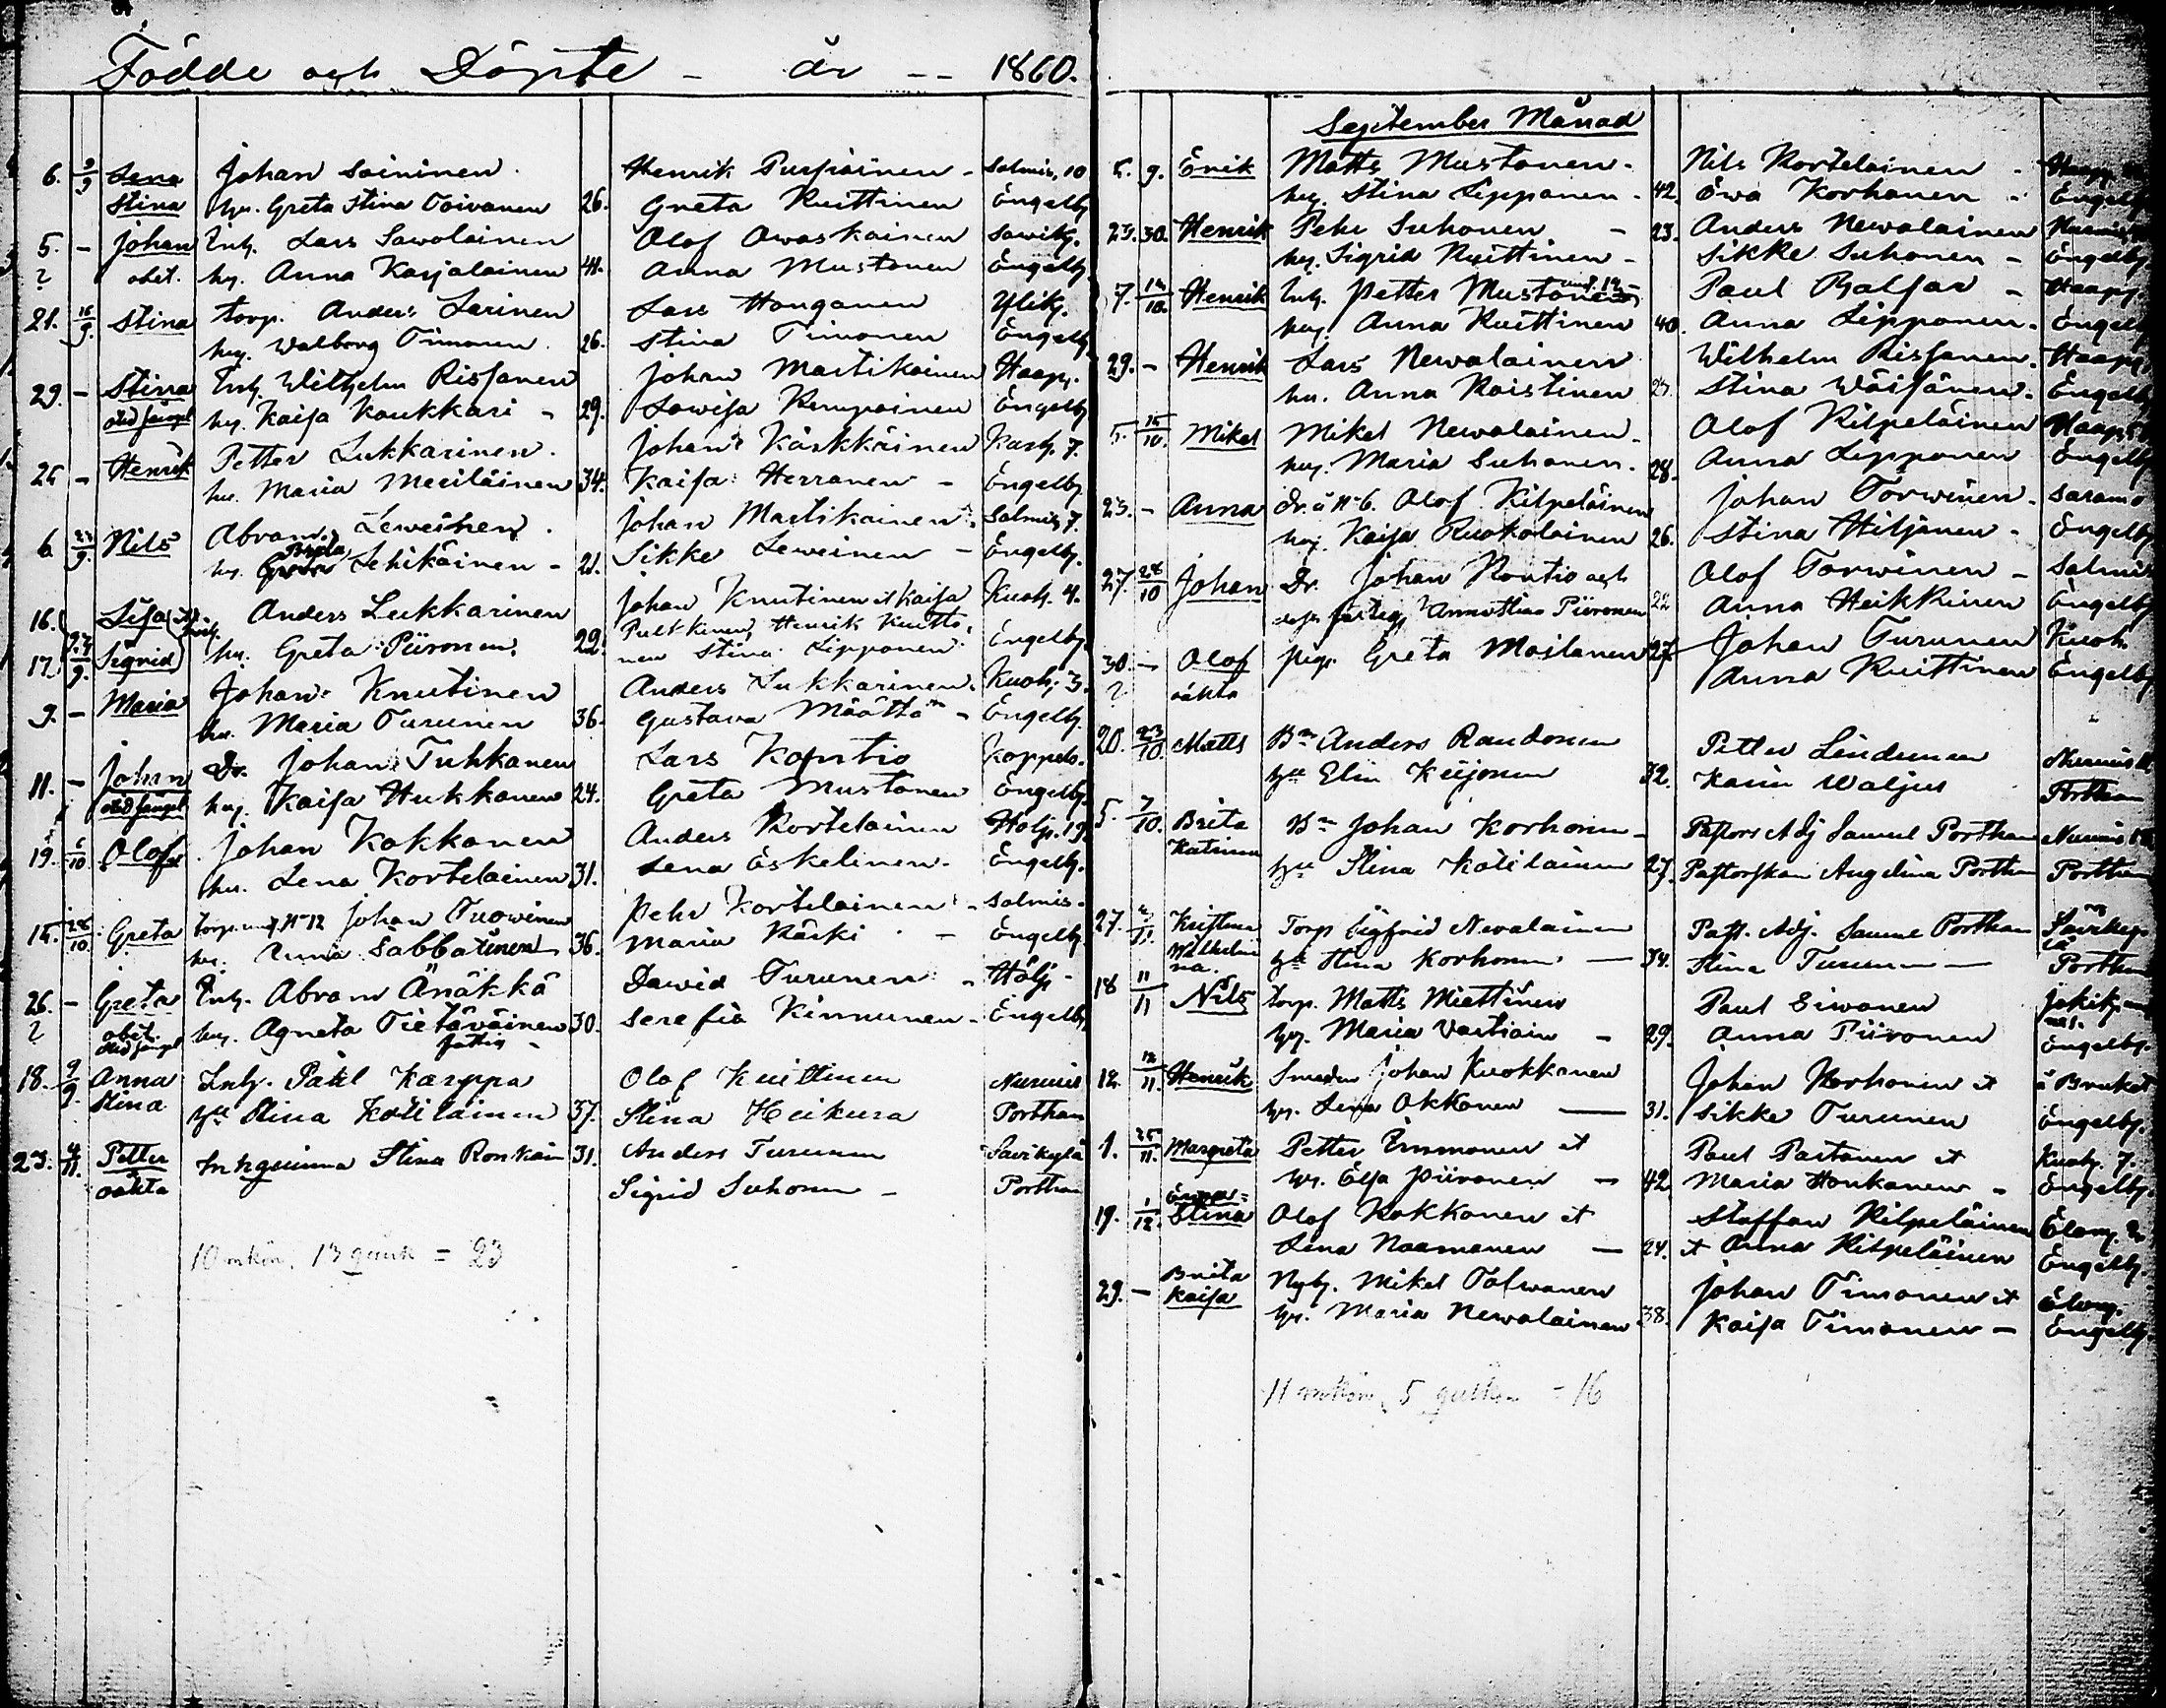 Födde och Döpte - år -- 1860.
6. 9/9 Lena Johan Soininen. Henrik Purhoinen - Salmis, 10
Stina hu. Greta Stina Toivanen 26. Greta Kuittinen Engelb.
5. - Johan Inh. Lars Sawolainen Olof Owaskainen Sawik.
2 obit. hu. Anna Karjalainen 41. Anna Mustonen Engelb.
21. 16/9. Stina torp. Anders Larinen Lars Honganen Ylik.
hu. Walborg Timonen. 26. Stina Timonen Engelb.
29. - Stina Inh. Wilhelm Rissanen Johan Martikainen Haap.
hu. Kaisa Koukkari - 29. Lowisa Kempainen Engelb.
25 - Henrik Petter Lukkarinen. Johan Kärkkäinen Karh. 7.
hu. Maria Meriläinen 34. Kaisa Herranen - Engelb.
6. 23/9. Nils Abram Leweinen. Johan Martikainen Salmis, 7.
Brita
hu. Greta Lehikäinen - 21. Sikke Leweinen - Engelb.
16. Lisa et Anders Lukkarinen Johan Knutinen et Kaisa Kuoh. 4.
17. 27/9. Sigrid hu. Greta Piironen. 29. Pulkkinen, Henrik Kuitti-
nen Stina Lipponen Engelb.
9. - Maria Johan Knutinen Anders Lukkarinen. Kuoh. 3.
hu. Maria Turunen 36. Gustava Määttä - Engelb.
11. - Johan Dr. Johan Tuhkanen Lars Kontio Koppelo.
hu. Kaisa Hukkanen 24. Greta Mustonen Engelb.
19. 6/10 Olof Johan Kokkonen Anders Kortelainen Hölj. 19.
hu. Lena Kortelainen 31. Lena Eskelinen. Engelb.
15. 28/10. Greta Torp. und. No 12 Johan Tuowinen Pehr Kortelainen - Salmis.
hu. Anna Sabbatinen 36. Maria Käski - Engelb.
26. - Greta Inh. Abram Änäkkä Dawid Turunen - Hölj -
2 obit hu. Agneta Tietäväinen 30. Serefia Kinnunen - Engelb.
fattig -
18. 9/9. Anna Inh. Påhl Karppa Olof Kuittinen Nurmis
Stina hu Stina Kotilainen 37. Stina Heikura Porthan
23. 4/11. Petter Inhquinna Stina Ronkain 31. Anders Turunen Savikylä
oäkta Sigrid Suhonen - Porthan
10 mkön, 13 qvink = 23
September Månad
5. 9. Erik Matts Mustonen. Nils Kortelainen - Haap.
hu. Stina Lipponen - 42. Ewa Korhonen - Engelb.
23. 30. Henrik Pehr Suhonen - 23. Anders Newalainen Nurmis
hu. Sigrid Kuittinen - Sikke Suhonen - Engelb.
7. 14/10. Henrik Inh. Petter Mustonen Paul Halfar - Haap.
hu. Anna Kuittinen 40. Anna Lipponen. Engelb.
29. - Henrik Lars Newalainen Wilhelm Rissanen. Haap.
hu. Anna Koistinen Stina Wäisänen. Engelb.
5. 15/10. Mikel Mikel Newalainen. Olof Kilpeläinen Haap.
hu. Maria Suhonen. 28. Anna Lipponen Engelb.
23. - Anna dr. å No 6. Olof Kilpeläinen Johan Torwinen. Saramo
hu. Kaisa Ruokolainen 26. Stina Hiljanen - Engelb.
27. 28/10 Johan Dr. Johan Kontio och Olof Torwinen - Salmis
Anna Stina Piironen 22 Anna Heikkinen Engelb.
30. - Olof pig. Greta Moilanen 27 Johan Turunen Kuoh.
2 oäkta Anna Kuittinen Engelb.
20. 23/10. Matts Bn Anders Raudonen Petter Lindemen Nurmis
hu Elin Keijonen 32. Karin Waljus Porthan
5. 7/10. Brita Bn Johan Korhonen - Pastors Adj Samuel Porthan Nurmis
Katrina hu Stina Kotilainen 27. Pastorskan Angelina Porthan Porthan
27. 4/11. Kristina Torp Sigfrid Newalainen Past. Adj. Samuel Porthan Savikyl
Wilhelmi
na. hu Stina Korhonen - 34. Stina Turunen - Porthan
18 11/11 Nils torp. Matts Miettinen Paul Siwonen Jokik.
hu. Maria Vartiain - 29. Anna Piironen Engelb.
12. 12/11. Henrik Smeden Johan Kuokkanen Johan Korhonen et å Bruket
hu. Lena Okkonen - 31. Sikke Turunen Engelb.
1. 25/11. Margreta Petter Immonen et Paul Partanen et Kuoh. 7.
hu. Elsa Piironen - 42. Maria Honkanen - Engelb.
19. 1/12. Stina Olof Kokkonen et Staffan Kilpeläinen
Lena Naamanen - 24. et Anna Kilpeläinen Engelb.
29. - Brita Nyb. Mikel Tolwanen Johan Timonen et
Kaisa hu. Maria Newalainen 38. Kaisa Timonen - Engelb.
11 mkön 5 qvinkön = 16